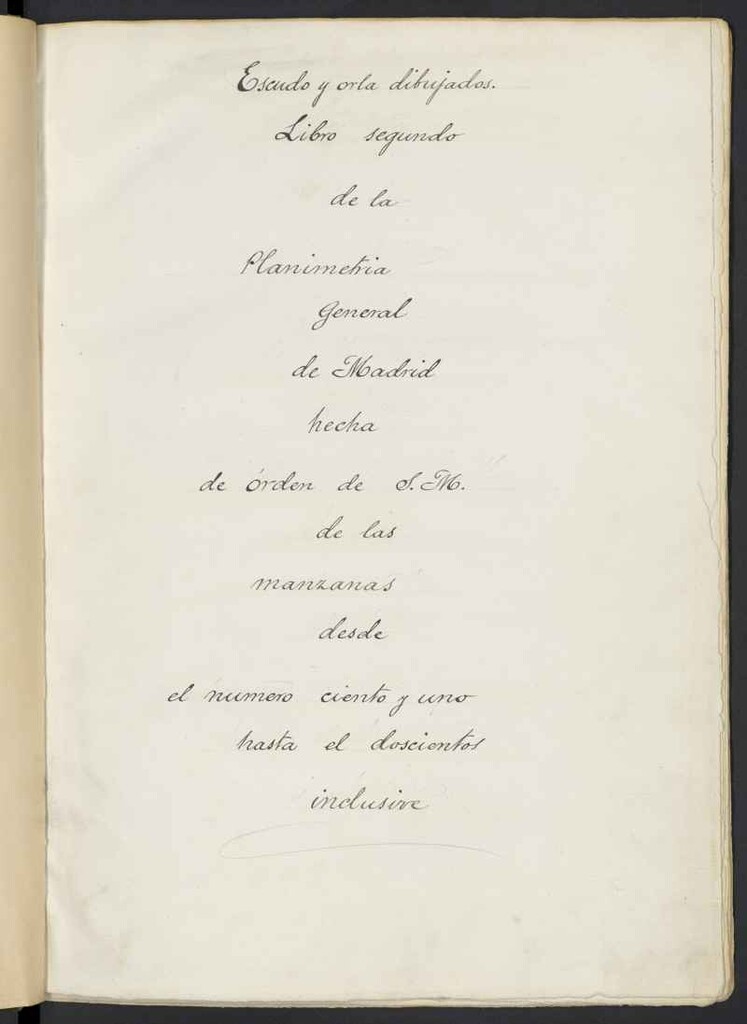 Escudo y orla dibujados.
Libro segundo
de la
Planimetria
General
de Madrid
hecha
de órden de S. M.
de las
manzanas
desde
el numero ciento y uno
hasta el doscientos
inclusive